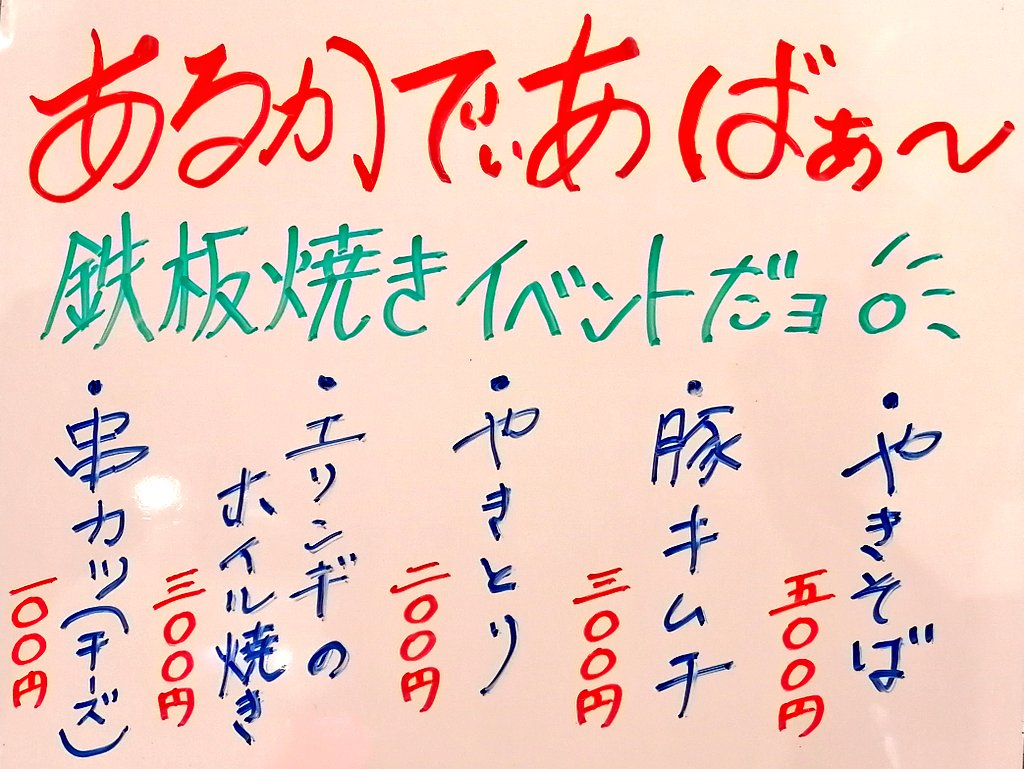 あるかでぃあばぁ〜
鉄板焼きイベントだヨ。
・やきそば
五〇〇円
・豚キムチ
三〇〇円
・やきとり
二〇〇円
・エリンギの
ホイル焼き
三〇〇円
・串カツ(チーズ)
一〇〇円